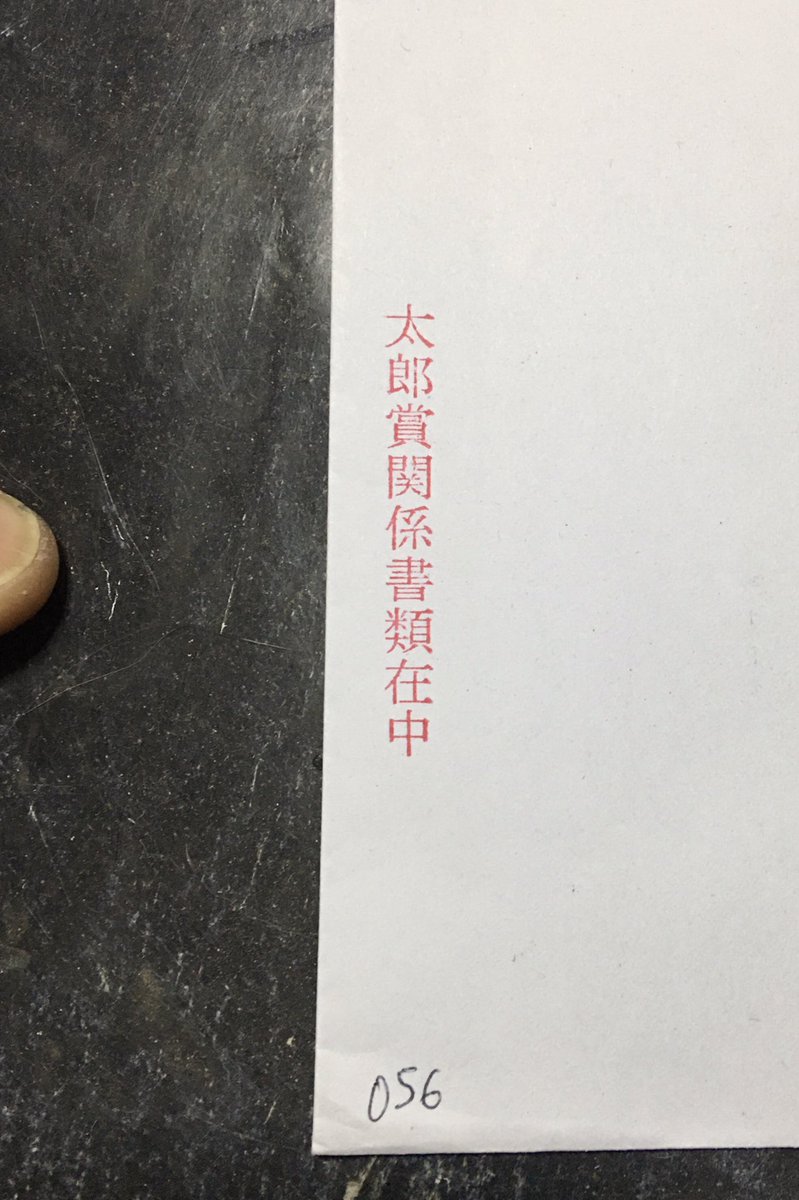 太郎賞関係書類在中
056